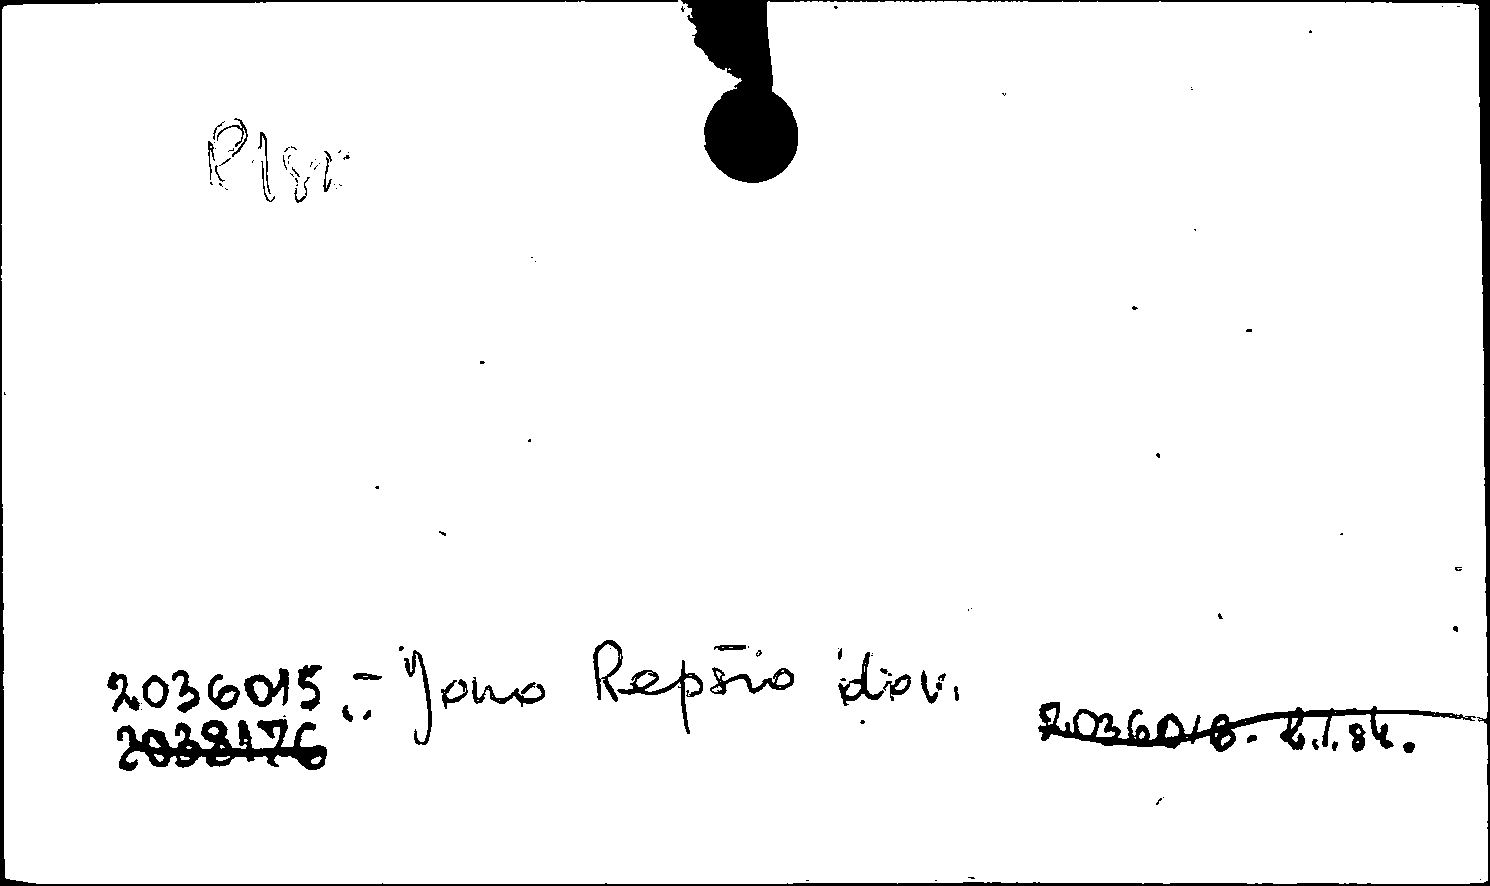 2036015 - Jono Repšio dov.
2038176
2036018. 2.1.84.